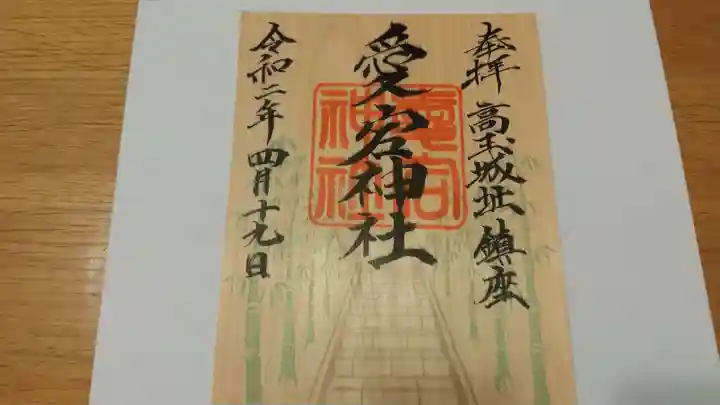 奉拝 高玉城址 鎮座
愛宕神社
愛宕
神社
令和二年 四月十九日